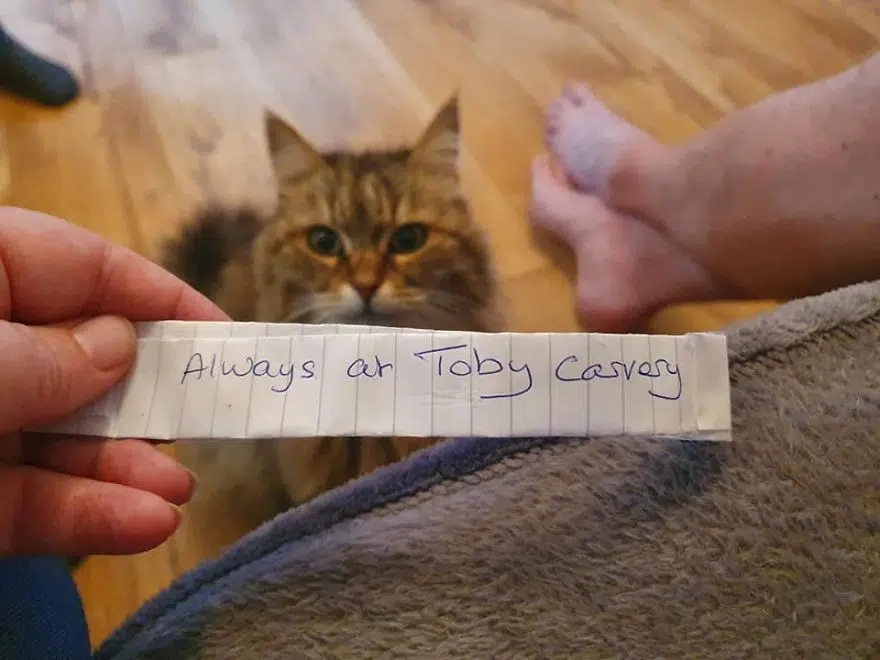 Always at Toby Carvery